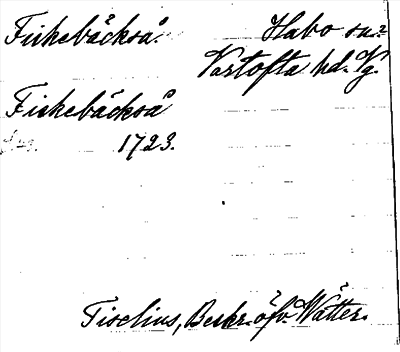 Fiskebäckså. Habo sn.
Vartofta hd. Vg.
Fiskebäckså
1723.
Tiselius, Beskr. öfv. Wätter.